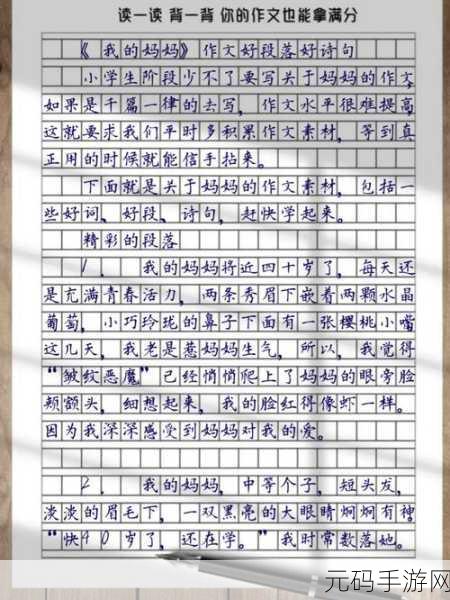 读一读 背一背 你的作文也能拿满分
《我的妈妈》作文好段落好诗句
小学生阶段少不了要写关于妈妈的作文,
如果是千篇一律的去写,作文水平很难提高,
这就要求我们平时多积累作文素材,等到真
正用的时候就能信手拈来。
下面就是关于妈妈的作文素材,包括一
些好词、好段、诗句,赶快学起来。
精彩的段落
1. 我的妈妈将近四十岁了,每天还
是充满青春活力,两条秀眉下嵌着两颗水晶
葡萄,小巧玲珑的鼻子下面有一张樱桃小嘴
这几天,我老是惹妈妈生气,所以,我觉得
“皱纹恶魔”已经悄悄爬上了妈妈的眼旁脸
颊额头,细想起来,我的脸红得像虾一样。
因为我深深感受到妈妈对我的爱。
2. 我的妈妈,中等个子,短头发,
淡淡的眉毛下,一双黑亮的大眼睛炯炯有神
“快40岁了,还在学。”我时常数落她。
元码手游网